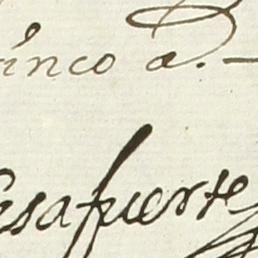 inco a.
esafuerte